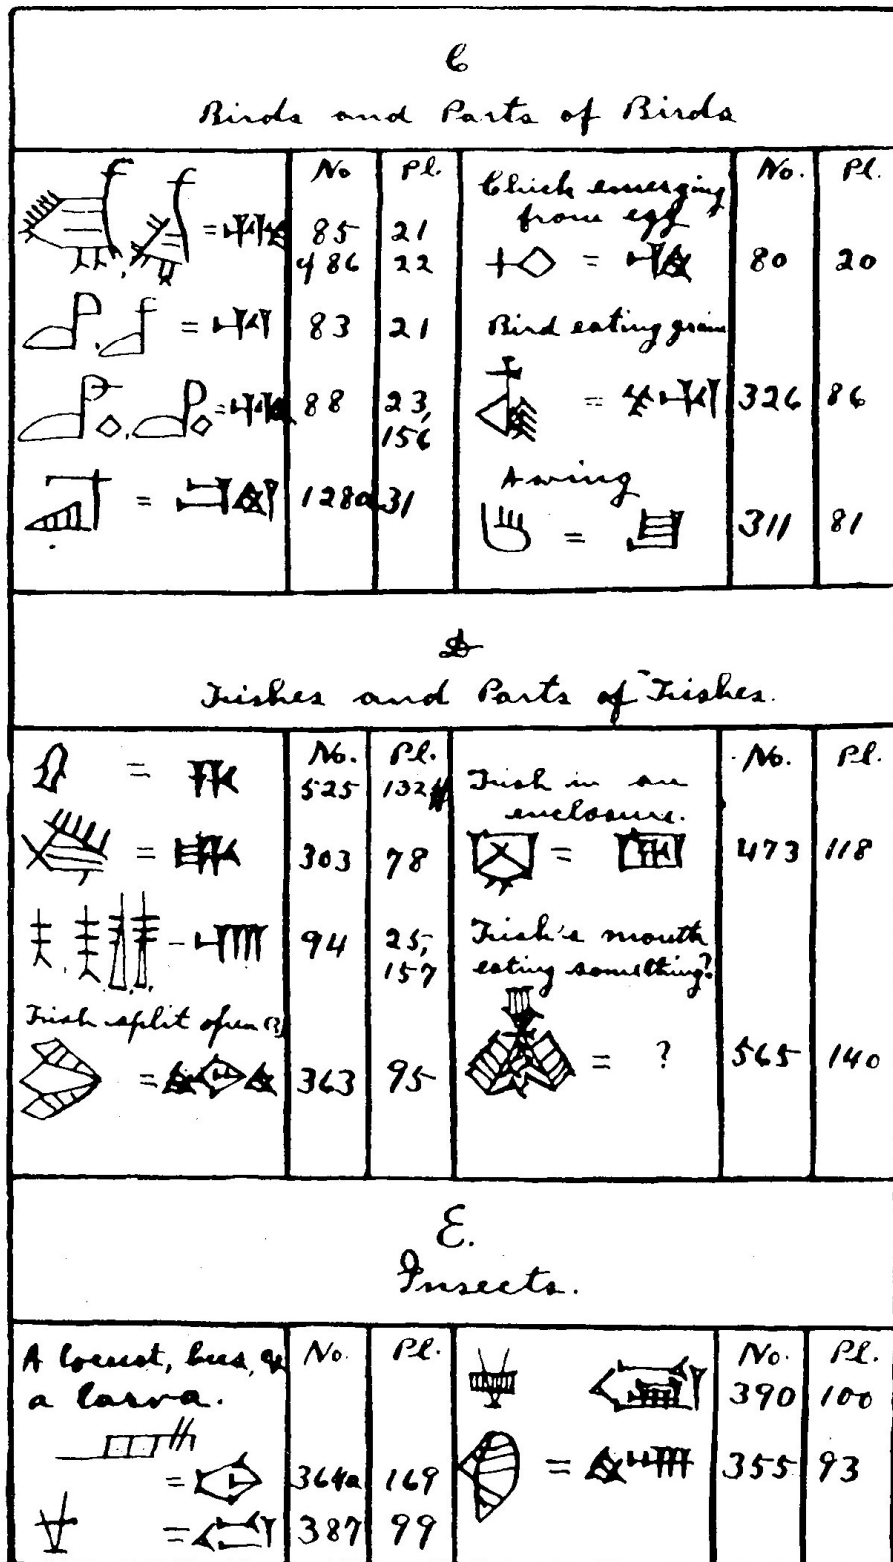 C
Birds and Parts of Birds
No Pl.
= 85 21
486 22
= 83 21
= 88 23,
156
= 128a 31
Chick emerging No. Pl.
from egg
= 80 20
Bird eating grain
= 326 86
A wing
= 311 81
D
Fishes and Parts of Fishes.
No. Pl.
= 525 132
= 303 78
94 25,
157
Fish split open (?)
= 363 95
Fish in an No. Pl.
enclosure.
= 473 118
Fish's mouth
eating something?
= ? 565 140
E.
Insects.
A locust, No. Pl.
a larva.
= 364a 169
= 387 99
No. Pl.
390 100
= 355 93